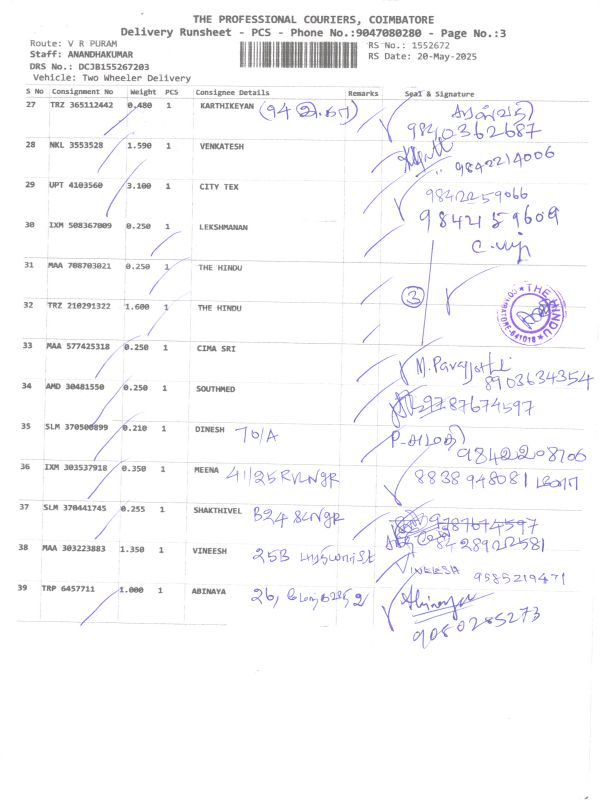 THE PROFESSIONAL COURIERS, COIMBATORE
Delivery Runsheet - PCS - Phone No.:9047080280 - Page No.:3
Route: V R PURAM
RS No.: 1552672
Staff: ANANDHAKUMAR
RS Date: 20-May-2025
DRS No.: DCJB155267203
Vehicle: Two Wheeler Delivery
S No Consignment No Weight PCS Consignee Details Remarks Seal & Signature
27 TRZ 365112442 0.480 1 KARTHIKEYAN
9842036 2687
28 NKL 3553528 1.590 1 VENKATESH
9842214006
29 UPT 4103560 3.100 1 CITY TEX
9842259066
9842159609
30 IXM 508367009 0.250 1 LEKSHMANAN
31 MAA 708703021 0.250 1 THE HINDU
3
THE HINDU
COIMBATORE-641018
32 TRZ 210291322 1.600 1 THE HINDU
33 MAA 577425318 0.250 1 CIMA SRI
8903634354
34 AMD 30481550 0.250 1 SOUTHMED
9787674597
35 SLM 370500899 0.210 1 DINESH 70/A
9842208706
36 IXM 303537918 0.350 1 MEENA 41/25 RVLNGR
8838948081
37 SLM 370441745 0.255 1 SHAKTHIVEL B24 SLNGR
8428922581
38 MAA 303223883 1.350 1 VINEESH 25B
VINEESH 9585219471
39 TRP 6457711 1.000 1 ABINAYA 26,
Abinaya
9080285273